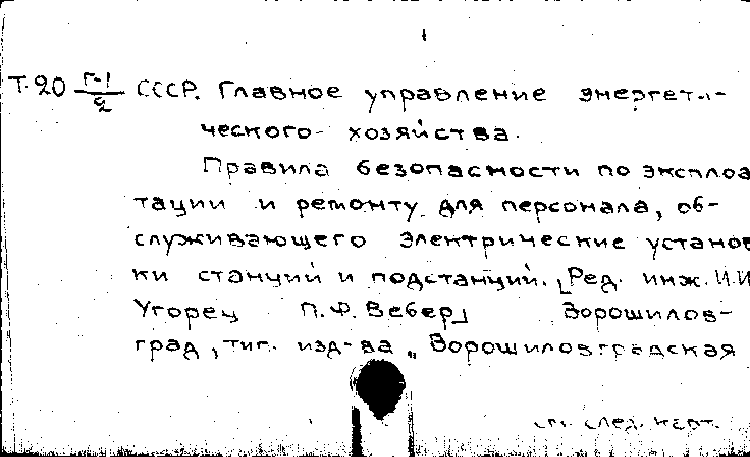 Т-20 Г-1/2 СССР. Главное управление энергети-
ческого хозяйства.
Правила безопасности по эксплоа
тации и ремонту для персонала, об-
служивающего электрические установ
ки станций и подстанций. [Ред. инж. И.И
Угорец П.Ф. Вебер] Ворошилов-
град, тип. изд-ва „Ворошиловградская
см. след. карт.